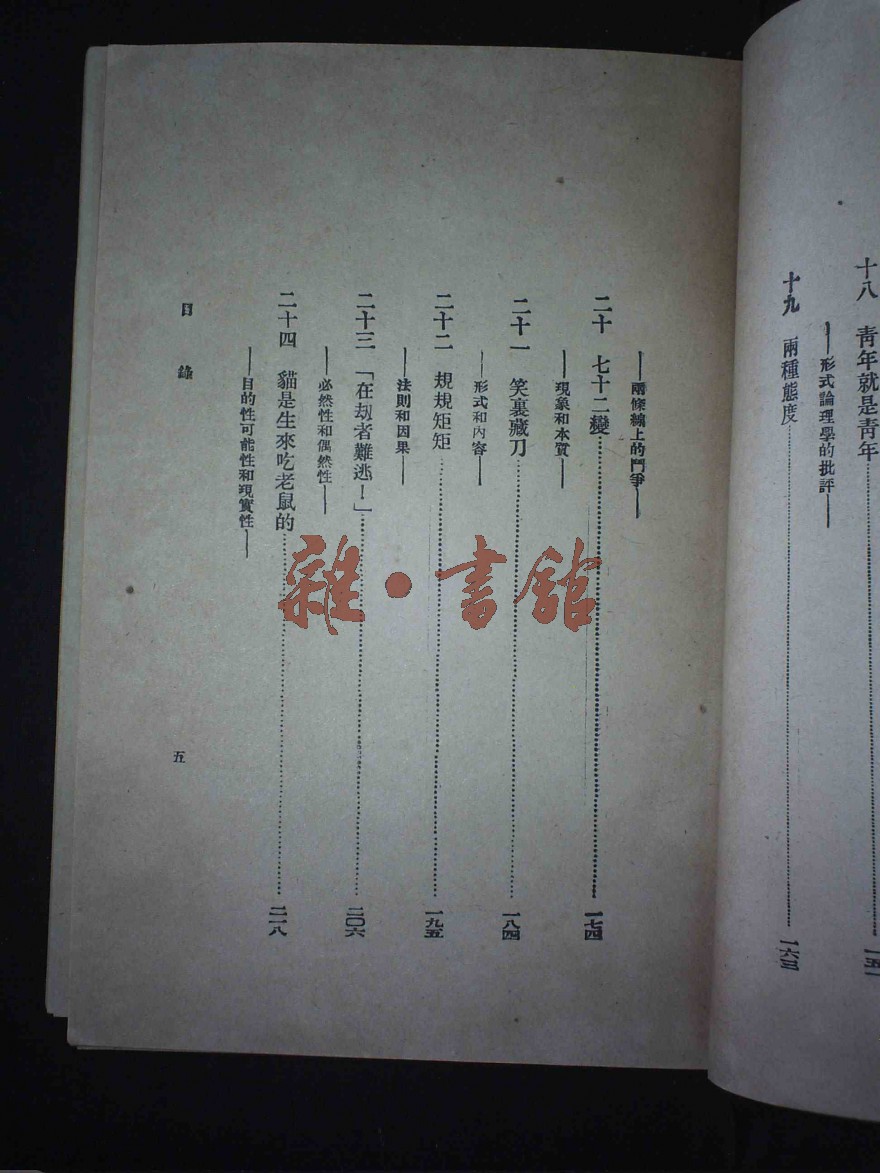 十八 青年就是青年……一五一
——形式論理學的批評——
十九 兩種態度……一六三
——兩條綫上的鬥爭——
二十 七十二變……一七四
——現象和本質——
二十一 笑裏藏刀……一八四
——形式和內容——
二十二 規規矩矩……一九五
——法則和因果——
二十三 「在劫者難逃！」……二〇六
——必然性和偶然性——
二十四 貓是生來吃老鼠的……二一八
——目的性可能性和現實性——
目錄
五
雜·書館